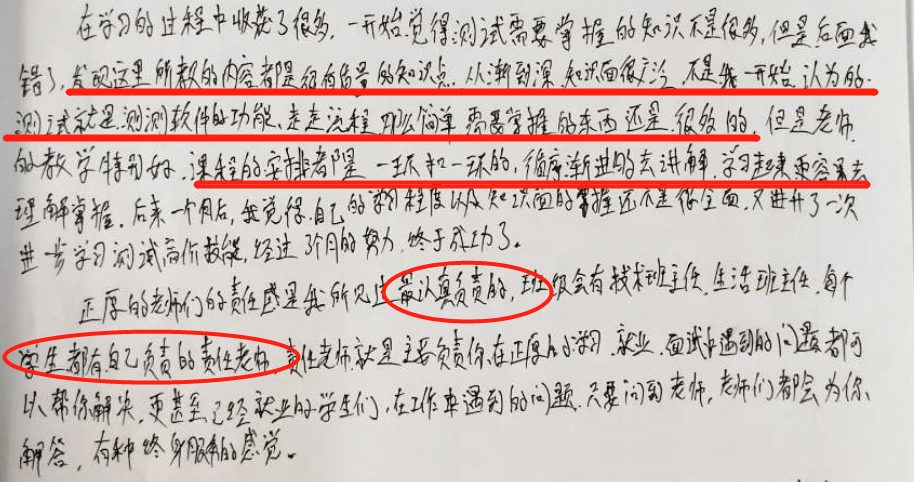 在学习的过程中收获了很多,一开始觉得测试需要掌握的知识不是很多,但是后面我
错了,发现这里所教的内容都是很有质量的知识点,从渐到深,知识面很广泛,不是我一开始认为的
测试就是测测软件的功能,走走流程那么简单,需要掌握的东西还是很多的,但是老师
的教学特别好,课程的安排都是一环扣一环的,循序渐进的去讲解,学习起来更容易去
理解掌握。后来一个月后,我觉得自己的学习程度以及知识面的掌握还不是很全面,又进升了一次
进一步学习测试高价技能,经过3个月的努力,终于成功了。
正厚的老师们的责任感是我所见过最认真负责的,班级会有技术班主任,生活班主任,每个
学生都有自己负责的责任老师,责任老师就是主要负责你在正厚的学习,就业,面试中遇到的问题都可
以帮你解决,更甚至已经就业的学生们,在工作中遇到的问题,只要问到老师,老师们都会为你
解答,有种终身服务的感觉。